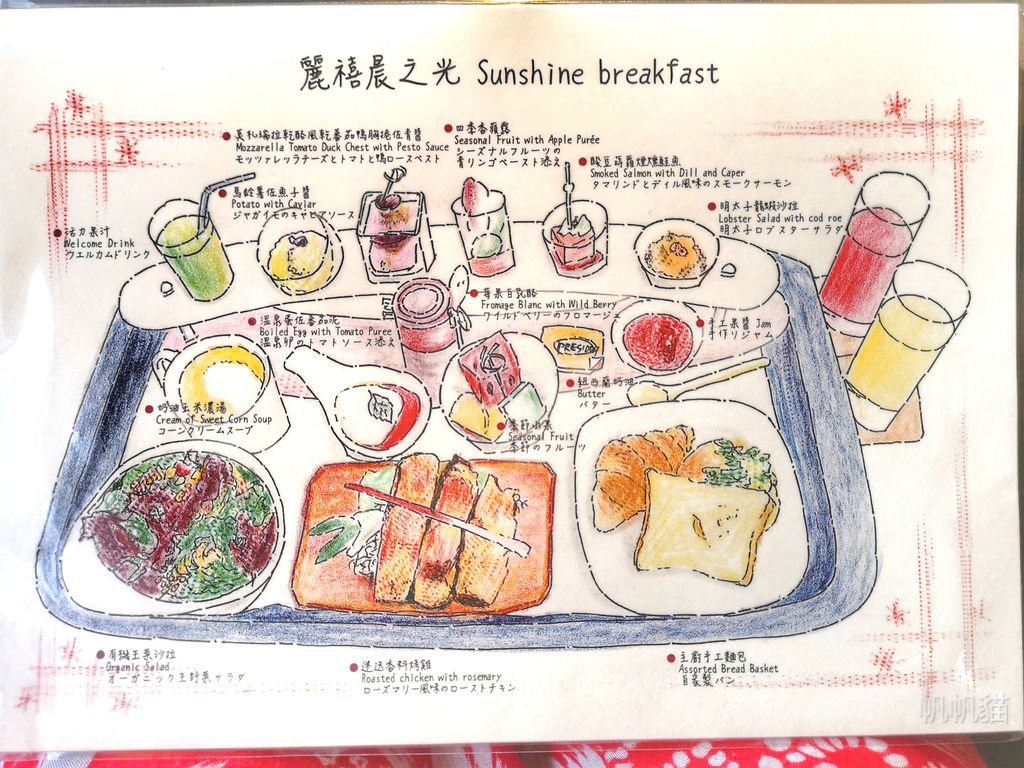 麗禧晨之光 Sunshine breakfast
莫札瑞拉乾酪風乾番茄鴨胸捲佐青醬
Mozzarella Tomato Duck Chest with Pesto Sauce
モッツァレッラチーズとトマトと鴨ロースペスト
四季香蘋露
Seasonal Fruit with Apple Purée
シーズナルフルーツの
青リンゴペースト添え
酸豆蒔蘿煙燻鮭魚
Smoked Salmon with Dill and Caper
タマリンドとディル風味のスモークサーモン
馬鈴薯佐魚子醬
Potato with Caviar
ジャガイモのキャビアソース
明太子龍蝦沙拉
Lobster Salad with cod roe
明太子ロブスターサラダ
活力果汁
Welcome Drink
ウエルカムドリンク
莓果白乳酪
Fromage Blanc with Wild Berry
ワイルドベリーのフロマージュ
溫泉蛋佐番茄泥
Boiled Egg with Tomato Puree
温泉卵のトマトソース添え
手工果醬 Jam
手作りジャム
PRESIDENT
紐西蘭奶油
Butter
バター
奶油玉米濃湯
Cream of Sweet Corn Soup
コーンクリームスープ
季節水果
Seasonal Fruit
季節のフルーツ
有機生菜沙拉
Organic Salad
オーガニック生野菜サラダ
迷迭香料烤雞
Roasted chicken with rosemary
ローズマリー風味のローストチキン
主廚手工麵包
Assorted Bread Basket
自家製パン
帆帆貓